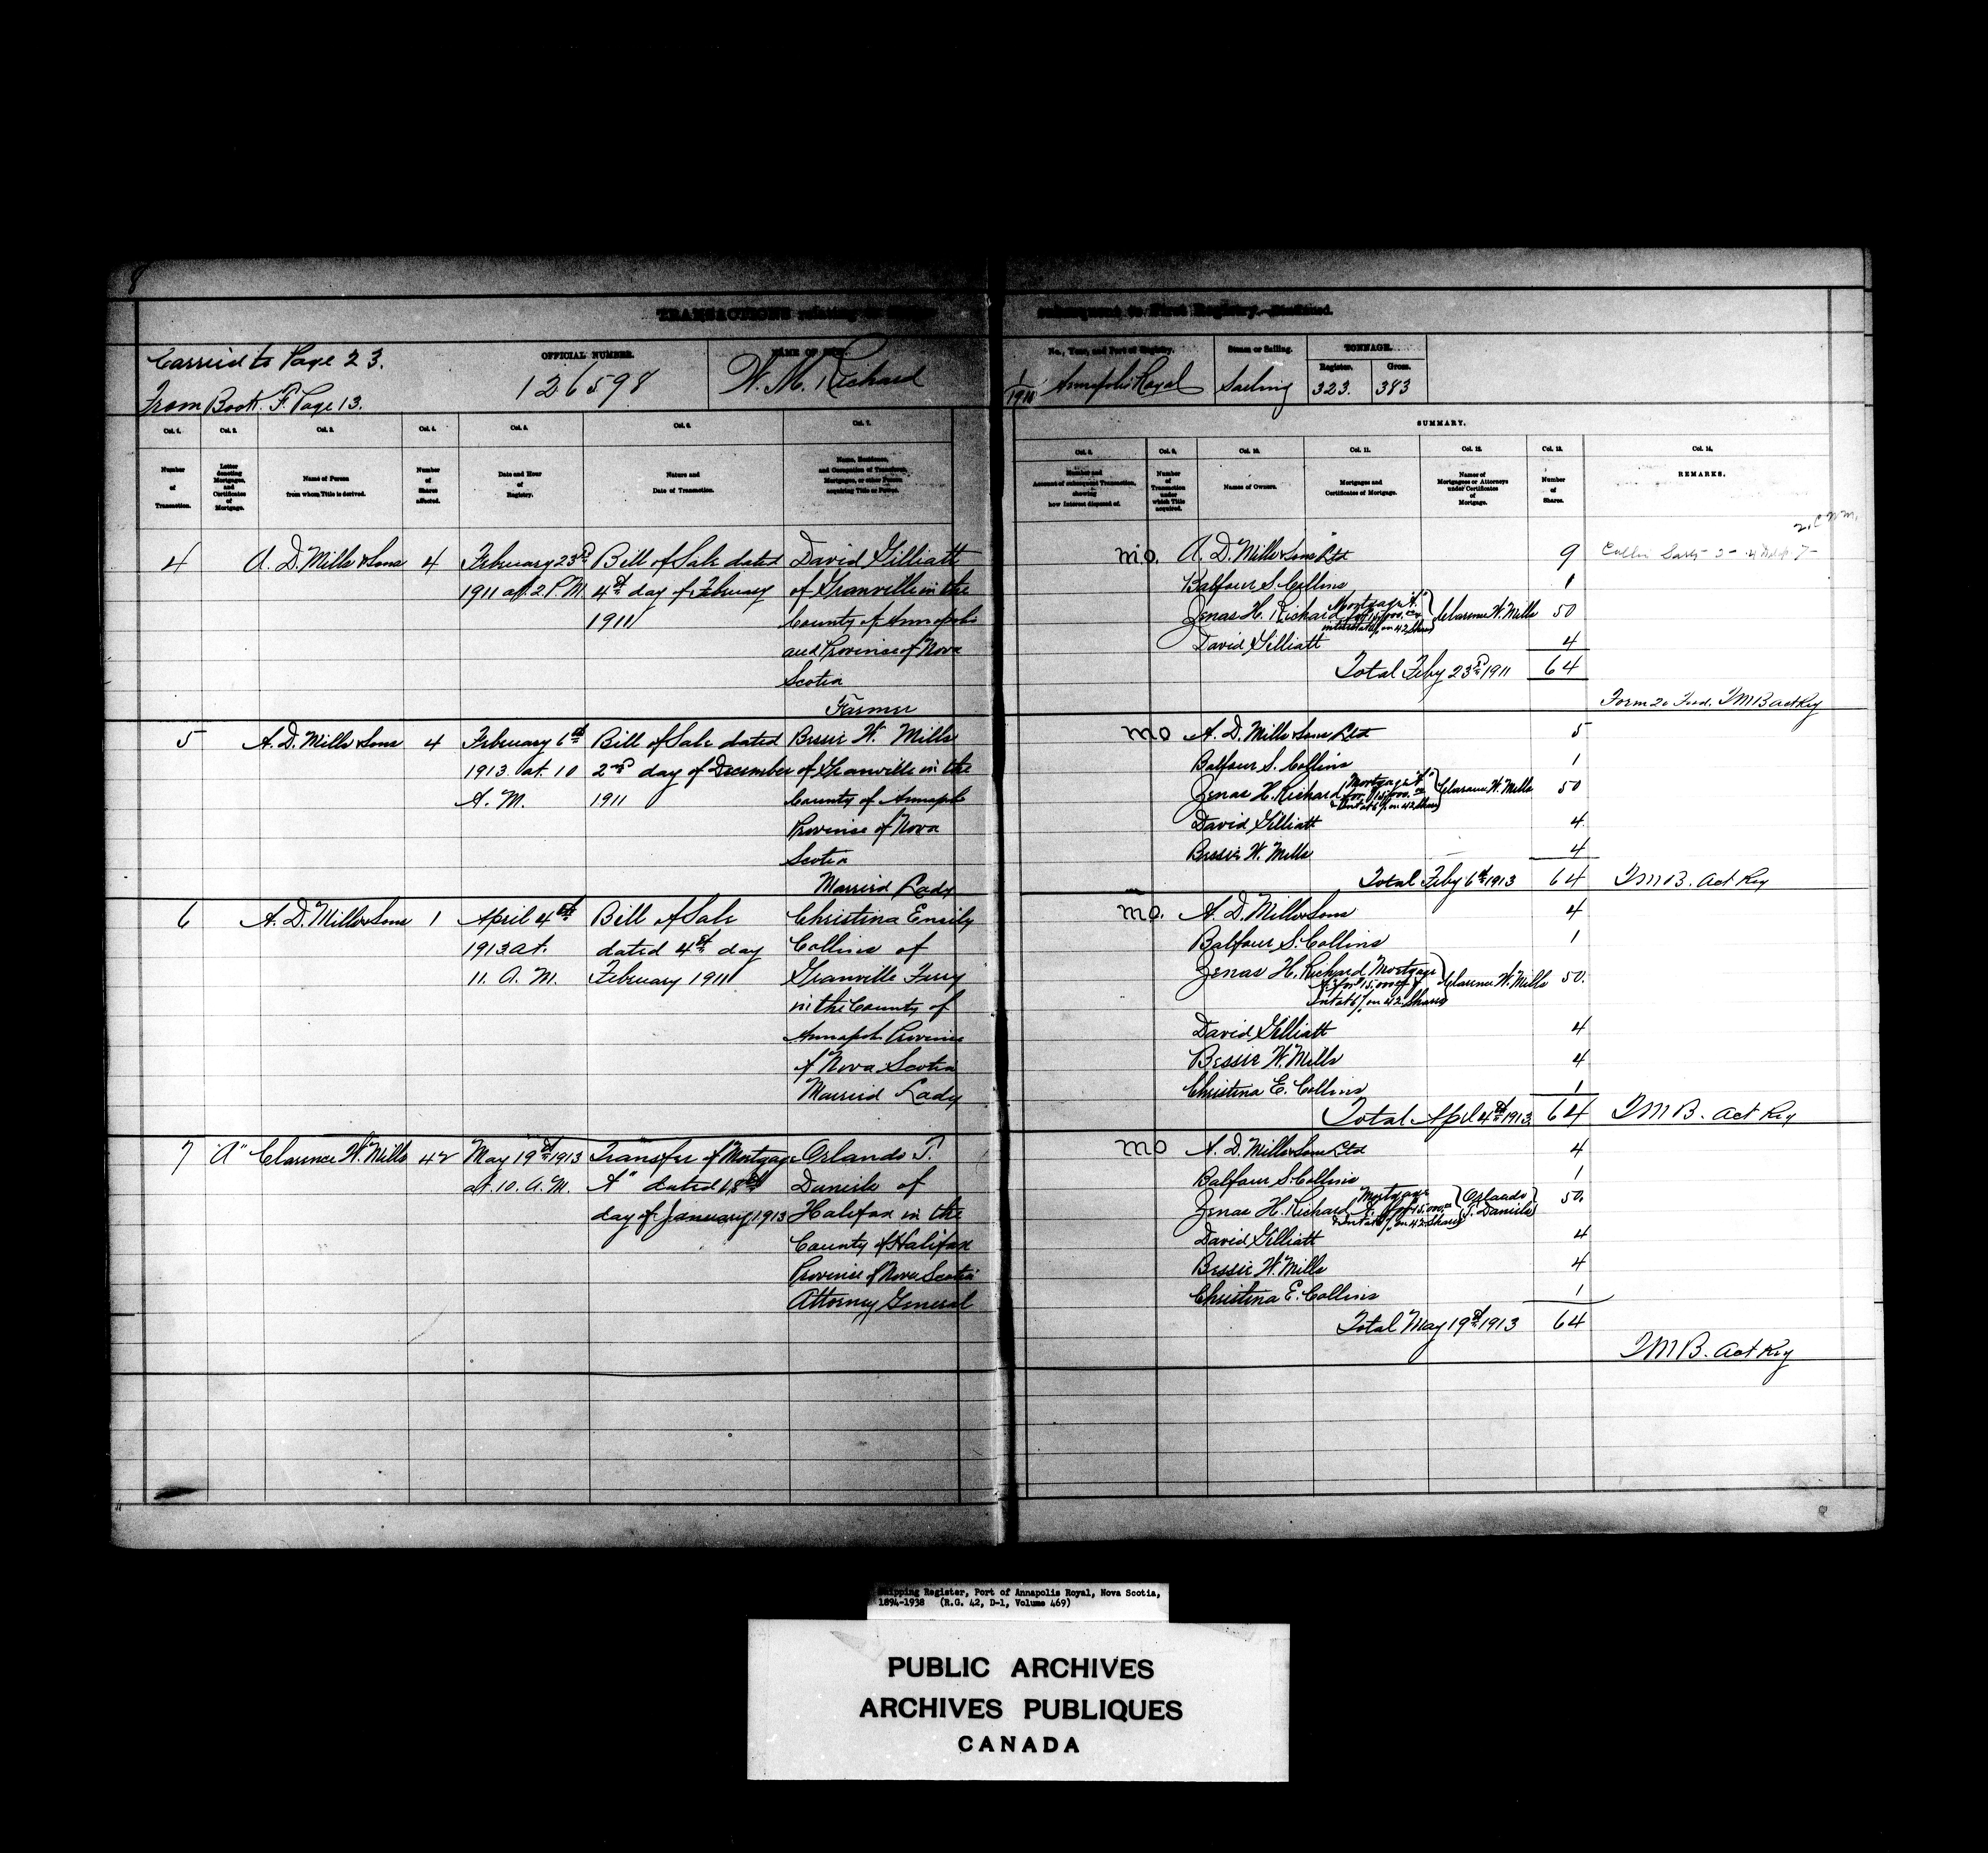 8
TRANSACTIONS relating to
subsequent to First Registry.
Carried to Page 23.
From Book. F. Page 13.
OFFICIAL NUMBER.
126598
NAME OF SHIP.
W. M. Richard
No., Year, and Port of Registry.
1/1911 Annapolis Royal
Steam or Sailing.
Sailing
TONNAGE.
Register.
323.
Gross.
383
SUMMARY.
Col. 1.
Number
of
Transaction.
Col. 2.
Letter
denoting
Mortgages,
and
Certificates
of
Mortgage.
Col. 3.
Name of Person
from whom Title is derived.
Col. 4.
Number
of
Shares
affected.
Col. 5.
Date and Hour
of
Registry.
Col. 6.
Nature and
Date of Transaction.
Col. 7.
Name, Residence,
and Occupation of Transferee,
Mortgagee, or other Person
acquiring Title or Power.
Col. 8.
Number and
Account of subsequent Transaction,
showing
how Interest disposed of.
Col. 9.
Number
of
Transaction
under
which Title
acquired.
Col. 10.
Names of Owners.
Col. 11.
Mortgages and
Certificates of Mortgage.
Col. 12.
Names of
Mortgagees or Attorneys
under Certificates
of
Mortgage.
Col. 13.
Number
of
Shares.
Col. 14.
REMARKS.
4 A. D. Mills & Sons 4 February 23rd Bill of Sale dated David Gilliatt
1911 at 2 P.M. 4th day of February of Granville in the
1911 County of Annapolis
and Province of Nova
Scotia
Farmer
mo. A. D. Mills & Sons Ltd 9
Balfour S. Collins 1
Zenas H. Richard Mortgage "A" for 15,000.00 interest at 6% on 42 Shares Clarence W. Mills 50
David Gilliatt 4
Total Feby 23rd 1911 64
Form 20 Fwd. TMB act Reg
5 A. D. Mills & Sons 4 February 6th Bill of Sale dated Bessie W. Mills
1913. at. 10 2nd day of December of Granville in the
A. M. 1911 County of Annapolis
Province of Nova
Scotia
Married Lady
mo A. D. Mills & Sons Ltd 5
Balfour S. Collins 1
Zenas H. Richard Mortgage "A" for 15,000.00 & Int at 6% on 42 Shares Clarence W. Mills 50
David Gilliatt 4
Bessie W. Mills 4
Total Feby 6th 1913 64 TMB. act Reg
6 A. D. Mills & Sons 1 April 4th Bill of Sale Christina Emily
1913 at. dated 4th day Collins of
11. A. M. February 1911 Granville Ferry
in the County of
Annapolis Province
of Nova Scotia
Married Lady
mo. A. D. Mills & Sons 4
Balfour S. Collins 1
Zenas H. Richard Mortgage A for 15,000 & Int at 6% on 42 Shares Clarence W. Mills 50.
David Gilliatt 4
Bessie W. Mills 4
Christina E. Collins 1
Total April 4th 1913 64 TMB. act Reg
7 "A" Clarence W. Mills 42 May 19th 1913 Transfer of Mortgage Orlando T.
at. 10. A. M. "A" dated 18th Daniels of
day of January 1913 Halifax in the
County of Halifax
Province of Nova Scotia
Attorney General
mo A. D. Mills & Sons Ltd 4
Balfour S. Collins 1
Zenas H. Richard Mortgage A for 15,000.00 & Int at 6% on 42 Shares Orlando T. Daniels 50.
David Gilliatt 4
Bessie W. Mills 4
Christina E. Collins 1
Total May 19th 1913 64
TMB. act Reg
Shipping Register, Port of Annapolis Royal, Nova Scotia,
1894-1938 (R.G. 42, D-1, Volume 469)
PUBLIC ARCHIVES
ARCHIVES PUBLIQUES
CANADA